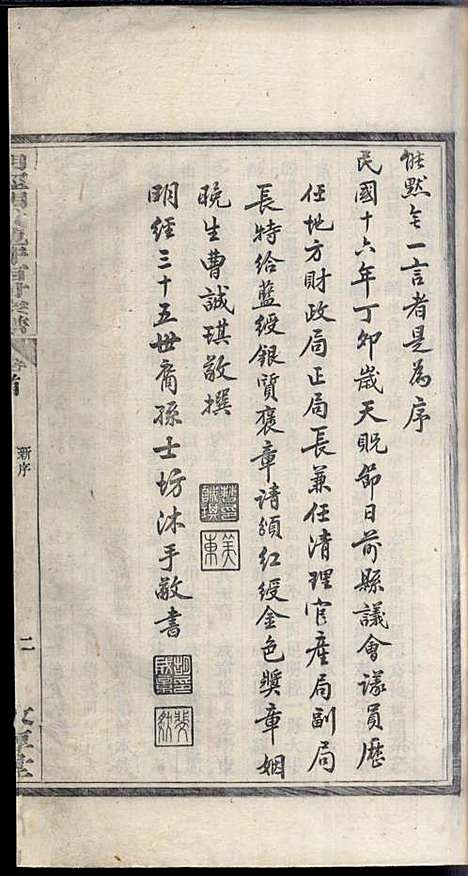 能默無一言者是為序
民國十六年丁卯歲天貺節日前縣議會議員歷
任地方財政局正局長兼任清理官產局副局
長特給藍綬銀質褒章請頒紅綬金色獎章姻
晚生曹誠琪敬撰
曹印誠琪
美東
明經三十五世裔孫士坊沐手敬書
新序
二